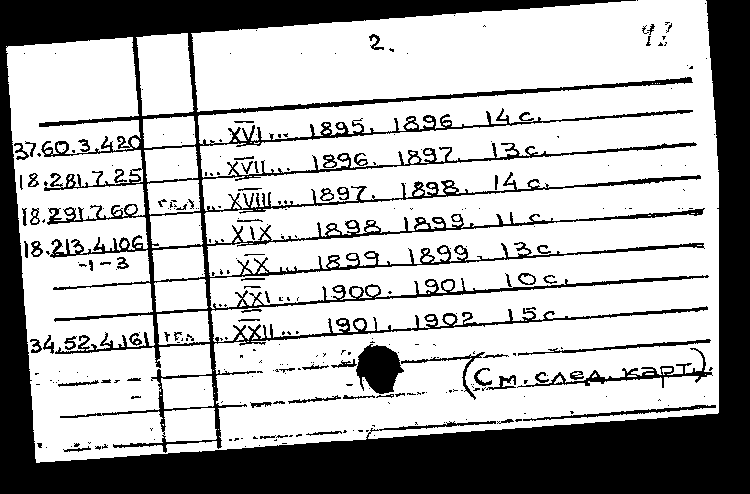 2.
37.60.3.420 ... XVI ... 1895. 1896. 14 с.
18.281.7.25 ... XVII ... 1896. 1897. 13 с.
18.291.7.60 ... XVIII ... 1897. 1898. 14 с.
18.213.4.106 ... XIX ... 1898 1899. 11 с.
-1-3 ... XX ... 1899. 1899. 13 с.
... XXI ... 1900. 1901. 10 с.
34.52.4.161 ... XXII ... 1901. 1902 15 с.
(См. след. карт.).